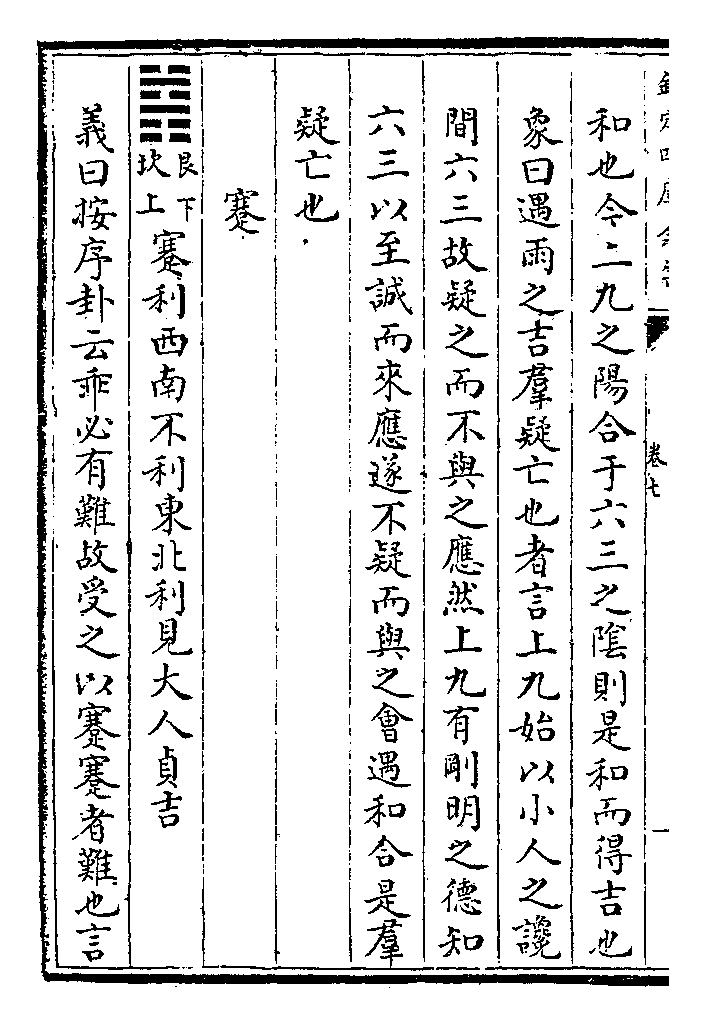 和也今二九之陽合于六三之隂則是和而得吉也
象曰遇雨之吉羣疑亡也者言上九始以小人之讒
間六三故疑之而不與之應然上九有剛明之德知
六三以至誠而來應遂不疑而與之會遇和合是羣
疑亡也
蹇
艮下
坎上
蹇利西南不利東北利見大人貞吉
義曰按序卦云乖必有難故受之以蹇蹇者難也言
卷七